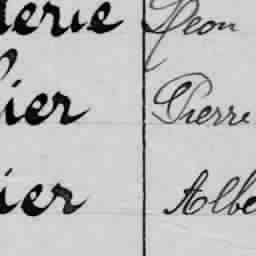 derie Léon
ier Pierre
ier Albe